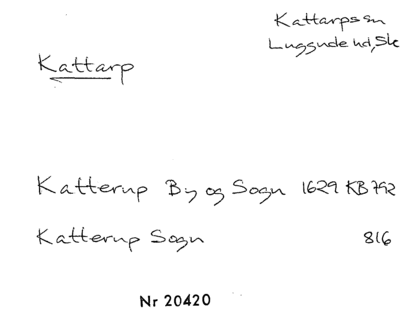 Kattarps sn
Luggude hd, Sk
Kattarp
Katterup By og Sogn 1629 KB 792
Katterup Sogn 816
Nr 20420